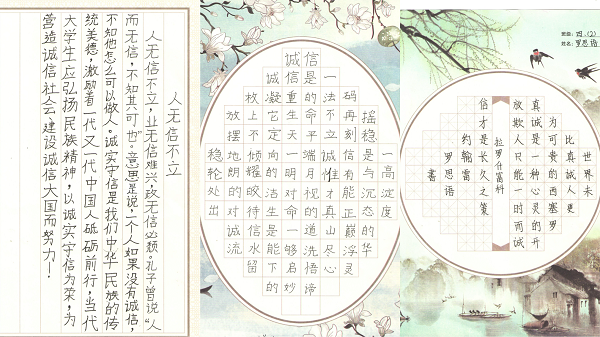 人无信不立
人无信不立,业无信难兴,政无信必颓。孔子曾说“人
而无信,不知其可也”。意思是说,一个人如果没有诚信,
不知他怎么可以做人。诚实守信是我们中华民族的传
统美德,激励着一代又一代中国人砥砺前行,当代
大学生应弘扬民族精神,以诚实守信为荣,为
营造诚信社会、建设诚信大国而努力!
一高淀度
摇稳是与沉态的华
码再刻信有能正巅浮灵
一法不立诚惟才真山尽心
信是的命子端月视的道洗悟谛
诚信重生天一明对命一够启妙
诚凝它定向的洁生是能下的
枚上不倾耀皎待信水留
放摆地朗的对诚流
稳轮处出
班级:四.(2)
姓名:罗思语
世
比真诚人更
为可贵的西塞罗
真诚是一种心灵的开
放欺人只能一时而诚
拉罗什富科
信才是长久之策
约翰雷
罗思语
书